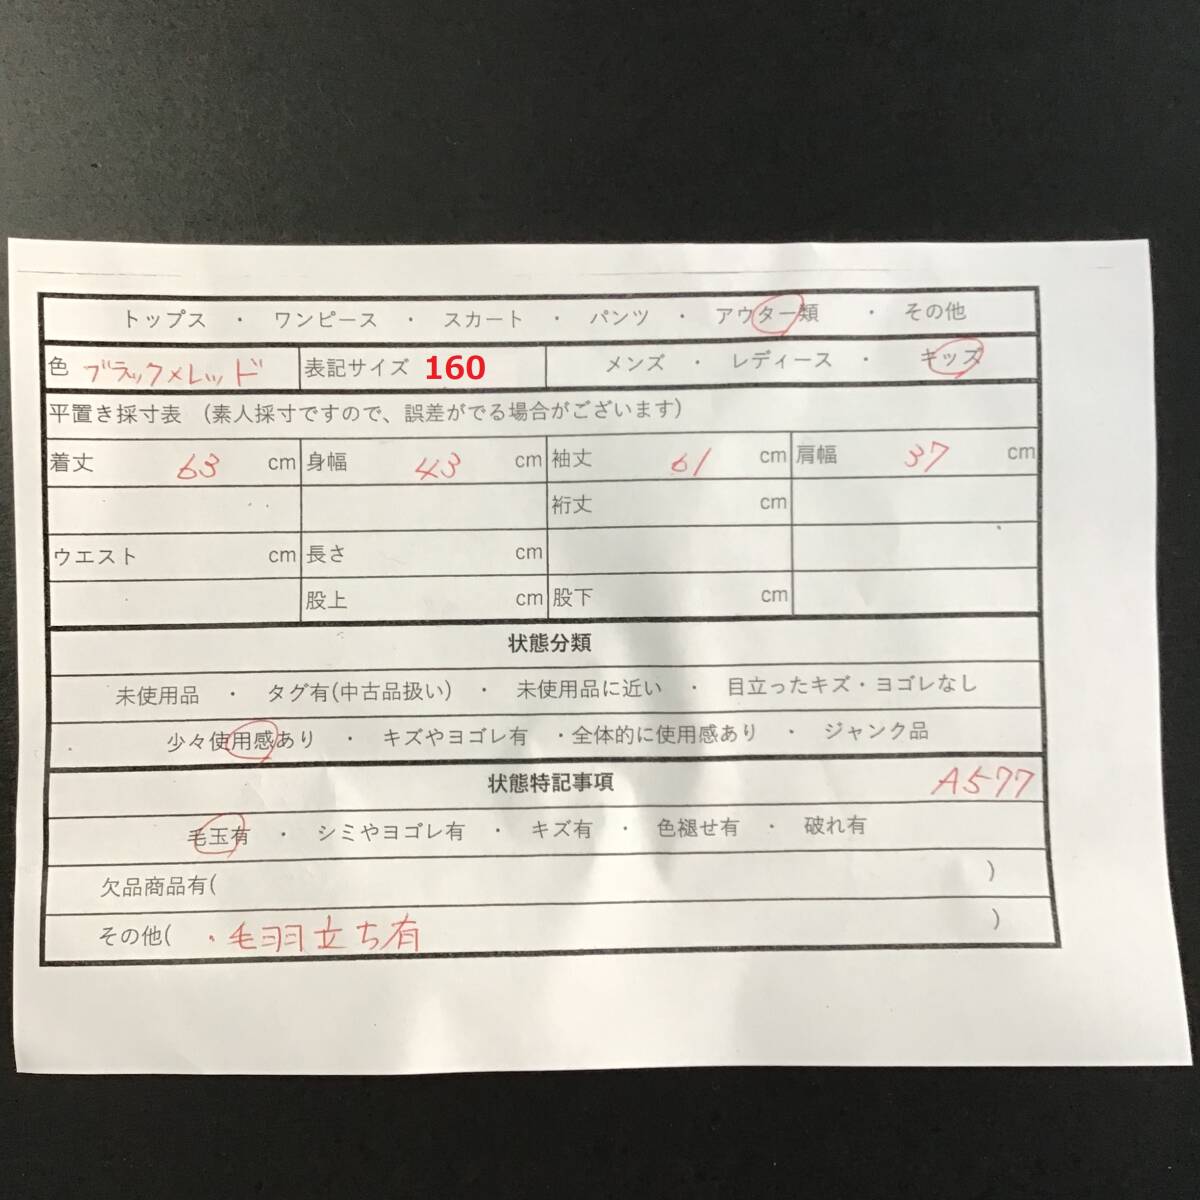 トップス ・ ワンピース ・ スカート ・ パンツ ・ アウター類 ・ その他
色 ブラック×レッド 表記サイズ 160 メンズ ・ レディース ・ キッズ
平置き採寸表 (素人採寸ですので、誤差がでる場合がございます)
着丈 63 cm 身幅 43 cm 袖丈 61 cm 肩幅 37 cm
裄丈 cm
ウエスト cm 長さ cm
股上 cm 股下 cm
状態分類
未使用品 ・ タグ有(中古品扱い) ・ 未使用品に近い ・ 目立ったキズ・ヨゴレなし
少々使用感あり ・ キズやヨゴレ有 ・全体的に使用感あり ・ ジャンク品
状態特記事項 A577
毛玉有 ・ シミやヨゴレ有 ・ キズ有 ・ 色褪せ有 ・ 破れ有
欠品商品有( )
その他( ・毛羽立ち有 )